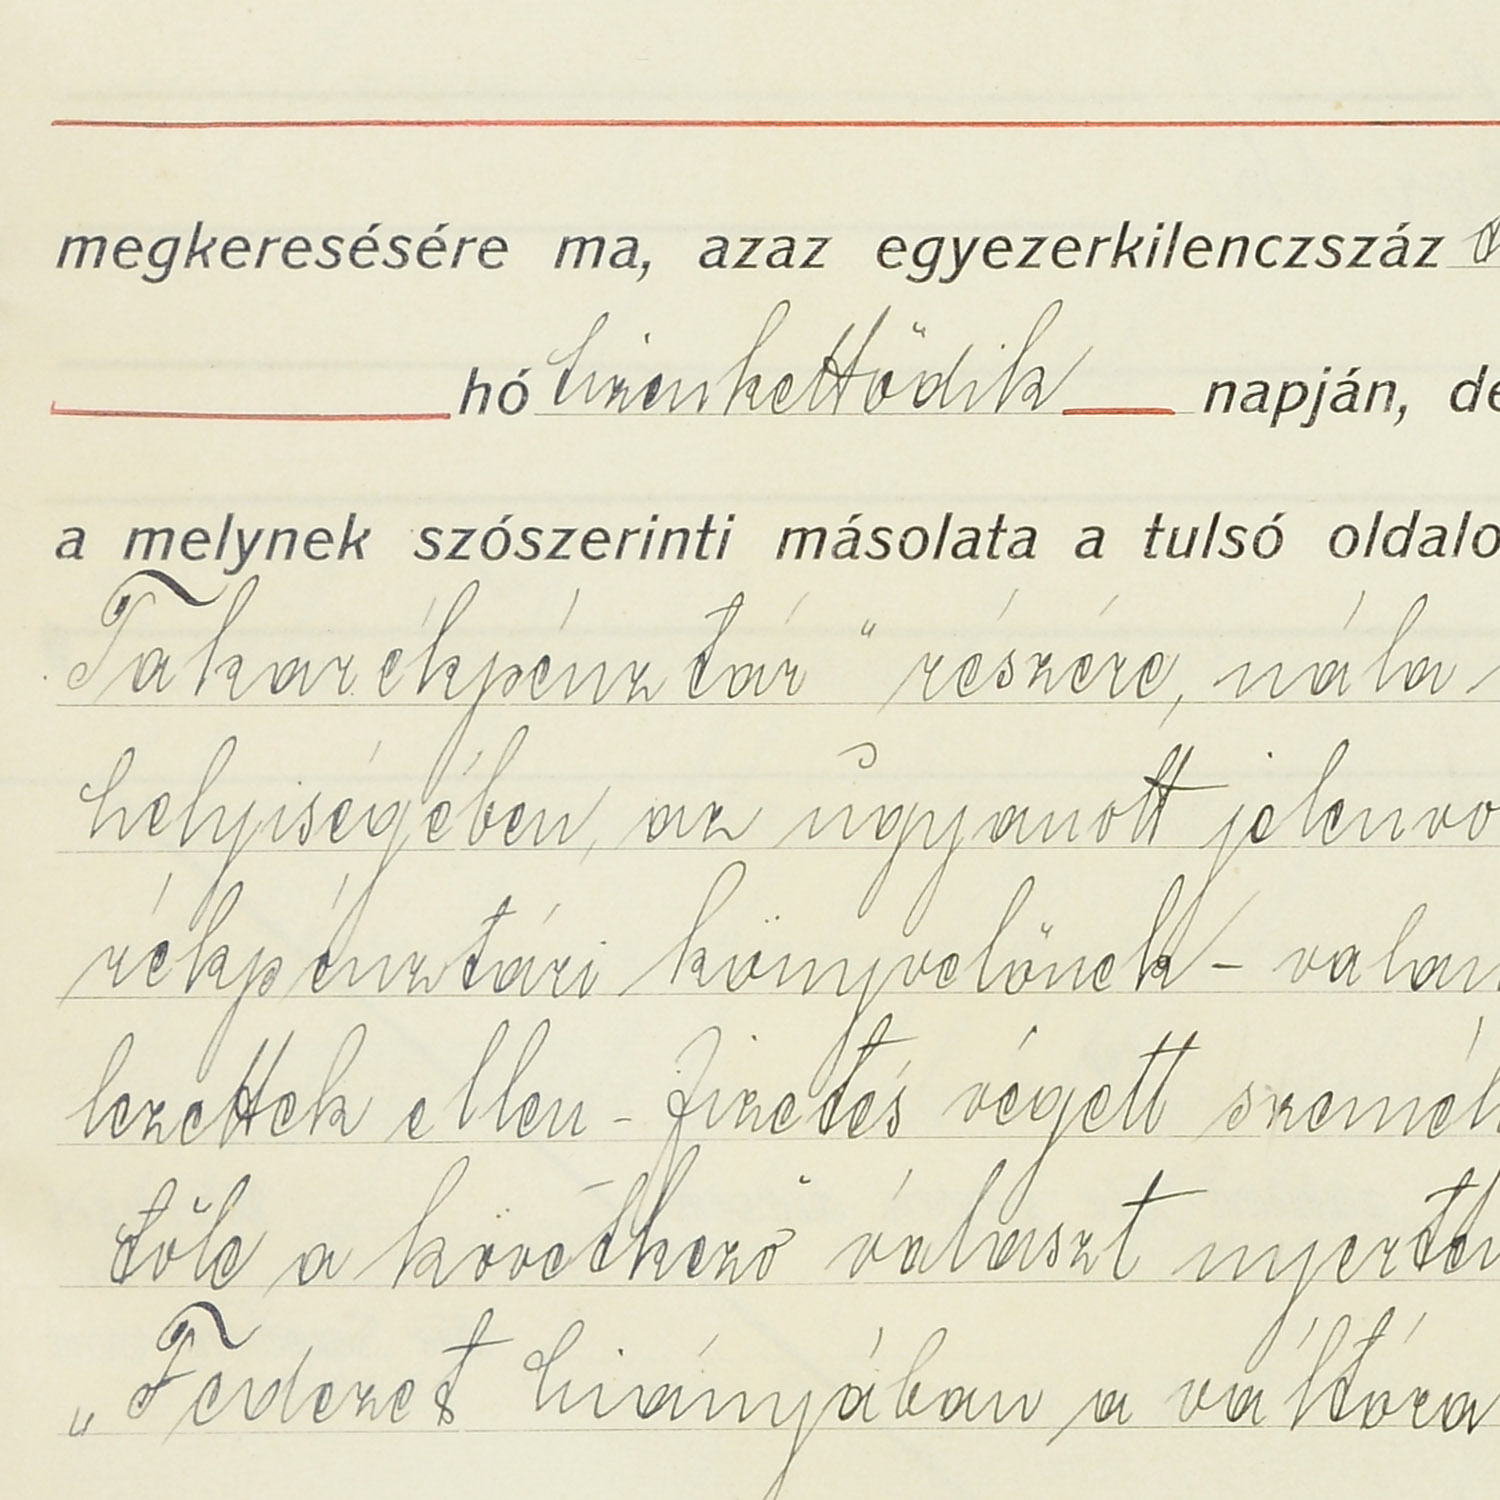 megkeresésére ma, azaz egyezerkilenczszáz
hó tizenkettödik napján, de
a melynek szószerinti másolata a tulsó oldalo
Takarékpénztár" részére, nála
helyiségében, az ugyanott jelenvo
rékpénztári könyvelőnek - valam
lezettek ellen - fizetés végett személ
tőle a következő választ nyertem
„Fedezet hiányában a váltóra